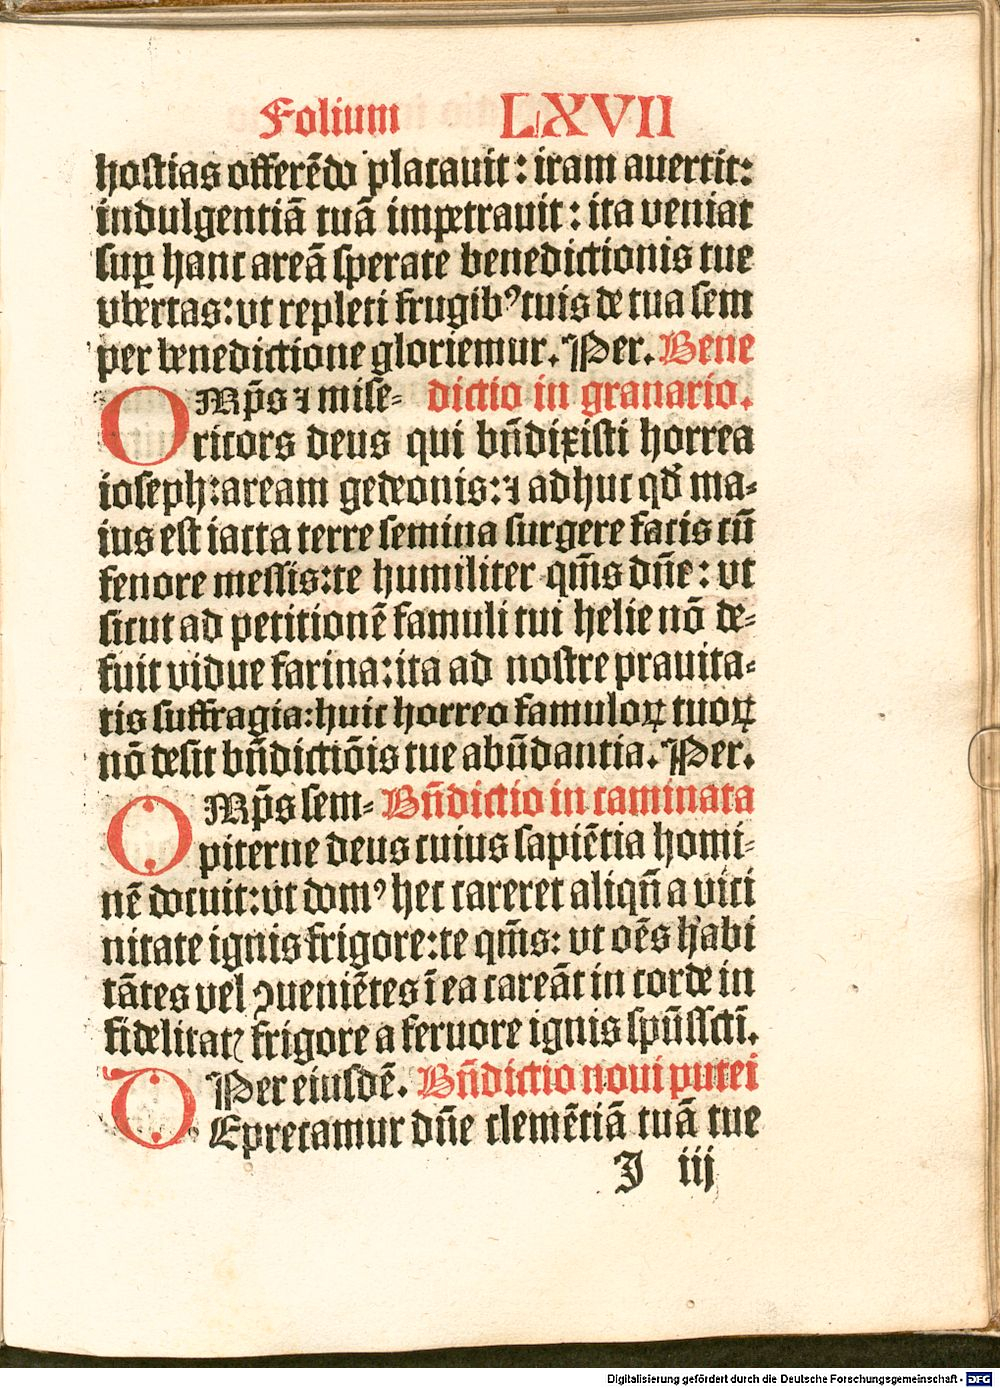 Folium LXVII
hostias offerēdo placauit: iram auertit:
indulgentiā tuā impetrauit: ita veniat
suꝑ hanc areā sperate benedictionis tue
vbertas: vt repleti frugibꝰ tuis de tua sem
per benedictione gloriemur. Per. Bene
OMp̄s ⁊ mise- dictio in granario.
ricors deus qui bn̄dixisti horrea
ioseph: aream gedeonis: ⁊ adhuc qd̄ ma-
ius est iacta terre semina surgere facis cū
fenore messis: te humiliter qm̄s dn̄e: vt
sicut ad petitionē famuli tui helie nō de-
fuit vidue farina: ita ad nostre prauita-
tis suffragia: huic horreo famuloꝝ tuoꝝ
nō desit bn̄dictiōis tue abūdantia. Per.
OMp̄s sem- Bn̄dictio in caminata
piterne deus cuius sapiētia homi-
nē docuit: vt domꝰ hec careret aliqn̄ a vici
nitate ignis frigore: te qm̄s: vt oēs habi
tātes vel ꝯueniētes ī ea careāt in corde in
fidelitatꝭ frigore a feruore ignis spūsscti.
Per eiusdē. Bn̄dictio noui putei
DEprecamur dn̄e clemētiā tuā tue
J iij
Digitalisierung gefördert durch die Deutsche Forschungsgemeinschaft - DFG